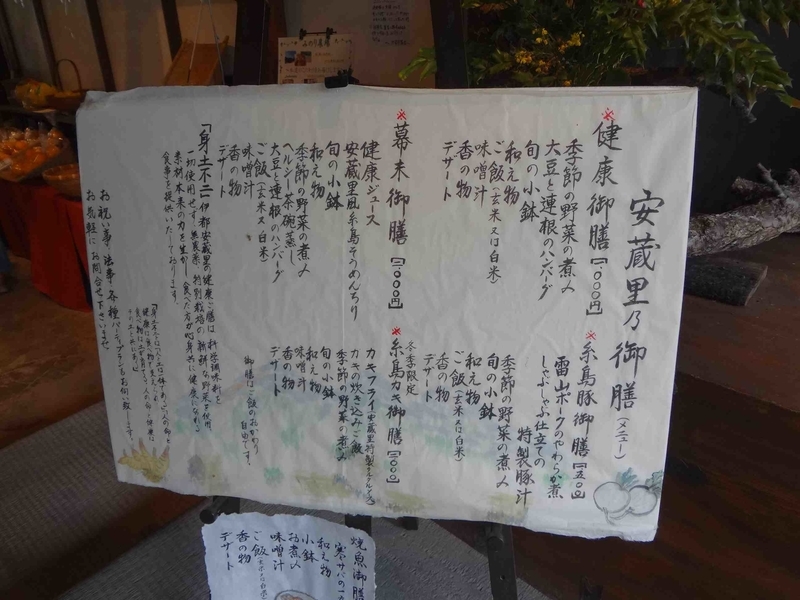 安蔵里乃御膳(メニュー)
※健康御膳【一、〇〇〇円】
季節の野菜の煮〆
大豆と連根のハンバーグ
旬の小鉢
和え物
味噌汁
ご飯(玄米又は白米)
香の物
デザート
※糸島豚御膳【一、五〇〇円】
雷山ポークのやわらか煮
しゃぶしゃぶ仕立ての
特製豚汁
季節の野菜の煮〆
旬の小鉢
和え物
味噌汁
ご飯(玄米又は白米)
香の物
デザート
※幕末御膳【二、〇〇〇円】
健康ジュース
安蔵里風糸島そうめんちり
旬の小鉢
和え物
季節の野菜の煮〆
ヘルシー茶碗蒸し
大豆と連根のハンバーグ
ご飯(玄米又は白米)
味噌汁
香の物
デザート
冬季限定
※糸島カキ御膳
カキフライ(安蔵里特製タルタルソース)
カキの炊き込みご飯
季節の野菜の煮〆
旬の小鉢
和え物
味噌汁
香の物
デザート
御膳はご飯のおかわり
自由です。
「身土不二」伊都安蔵里の健康ご膳は科学調味料を
一切使用せず、無農薬、特別栽培の新鮮な野菜を使用
素材本来の力を生かし食べた方が心身共に健康になれる
食事を提供いたしております。
お祝い事・法事・各種パーティープランもお伺い致します。
お気軽にお問合せ下さいませ
焼魚御膳
和え物
小鉢
お煮〆
味噌汁
ご飯
香の物
デザート